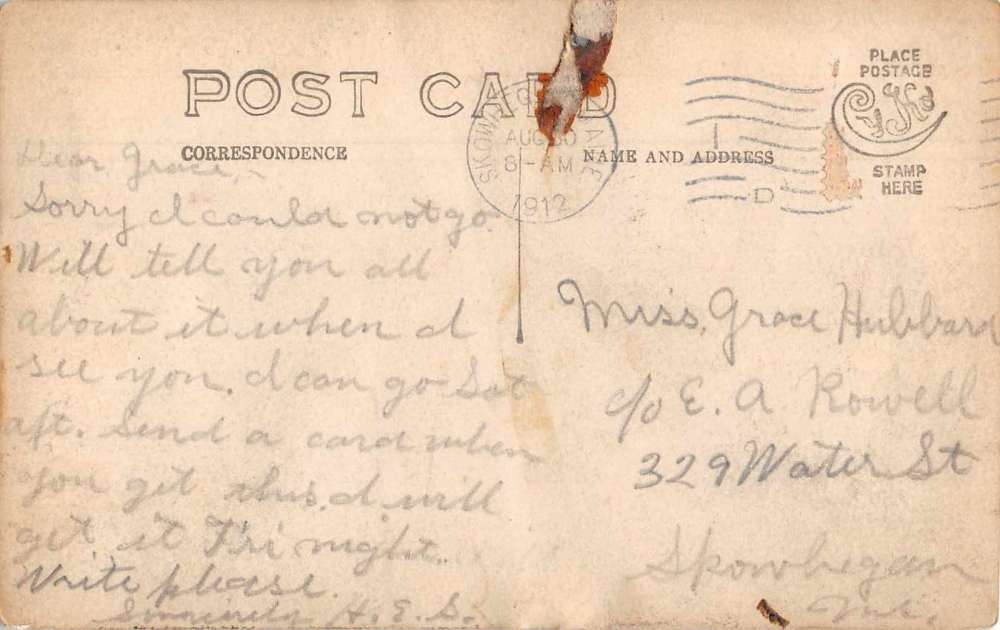 POST CARD
CORRESPONDENCE
NAME AND ADDRESS
PLACE
POSTAGE
CyKo
STAMP
HERE
AUG 30
8-AM
1912
D
Dear Grace,-
Sorry I could not go.
Will tell you all
about it when I
see you. I can go Sat
aft. Send a card when
you get this. I will
get it Fri night.
Write please.
Sincerely H. E. S.
Miss. Grace Hubbard
c/o E. A. Rowell
329 Water St
Skowhegan
Me.